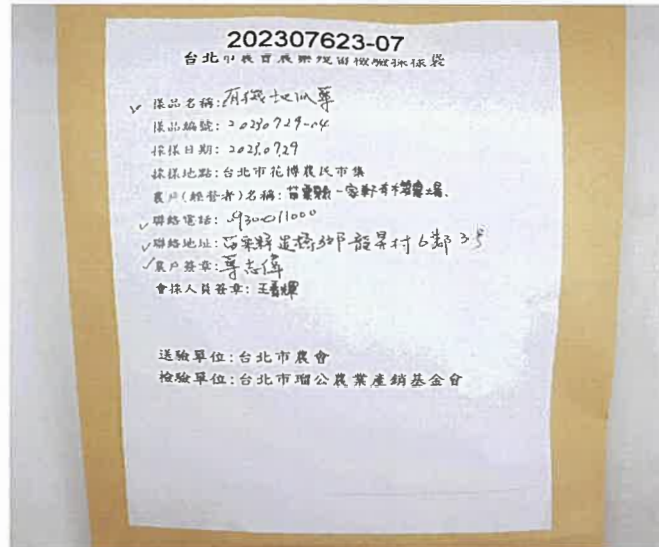 202307623-07
台北市農會農藥殘留檢驗採樣袋
✓ 樣品名稱:有機地瓜葉
樣品編號:20230729-04
採樣日期:2023.0729
採樣地點:台北市花博農民市集
農戶(經營者)名稱:苗栗縣一家鄉有機農場
✓ 聯絡電話:0930011000
✓ 聯絡地址:苗栗縣造橋鄉龍昇村6鄰3号
✓ 農戶簽章:葉志偉
會採人員簽章:
送驗單位:台北市農會
檢驗單位:台北市瑠公農業產銷基金會